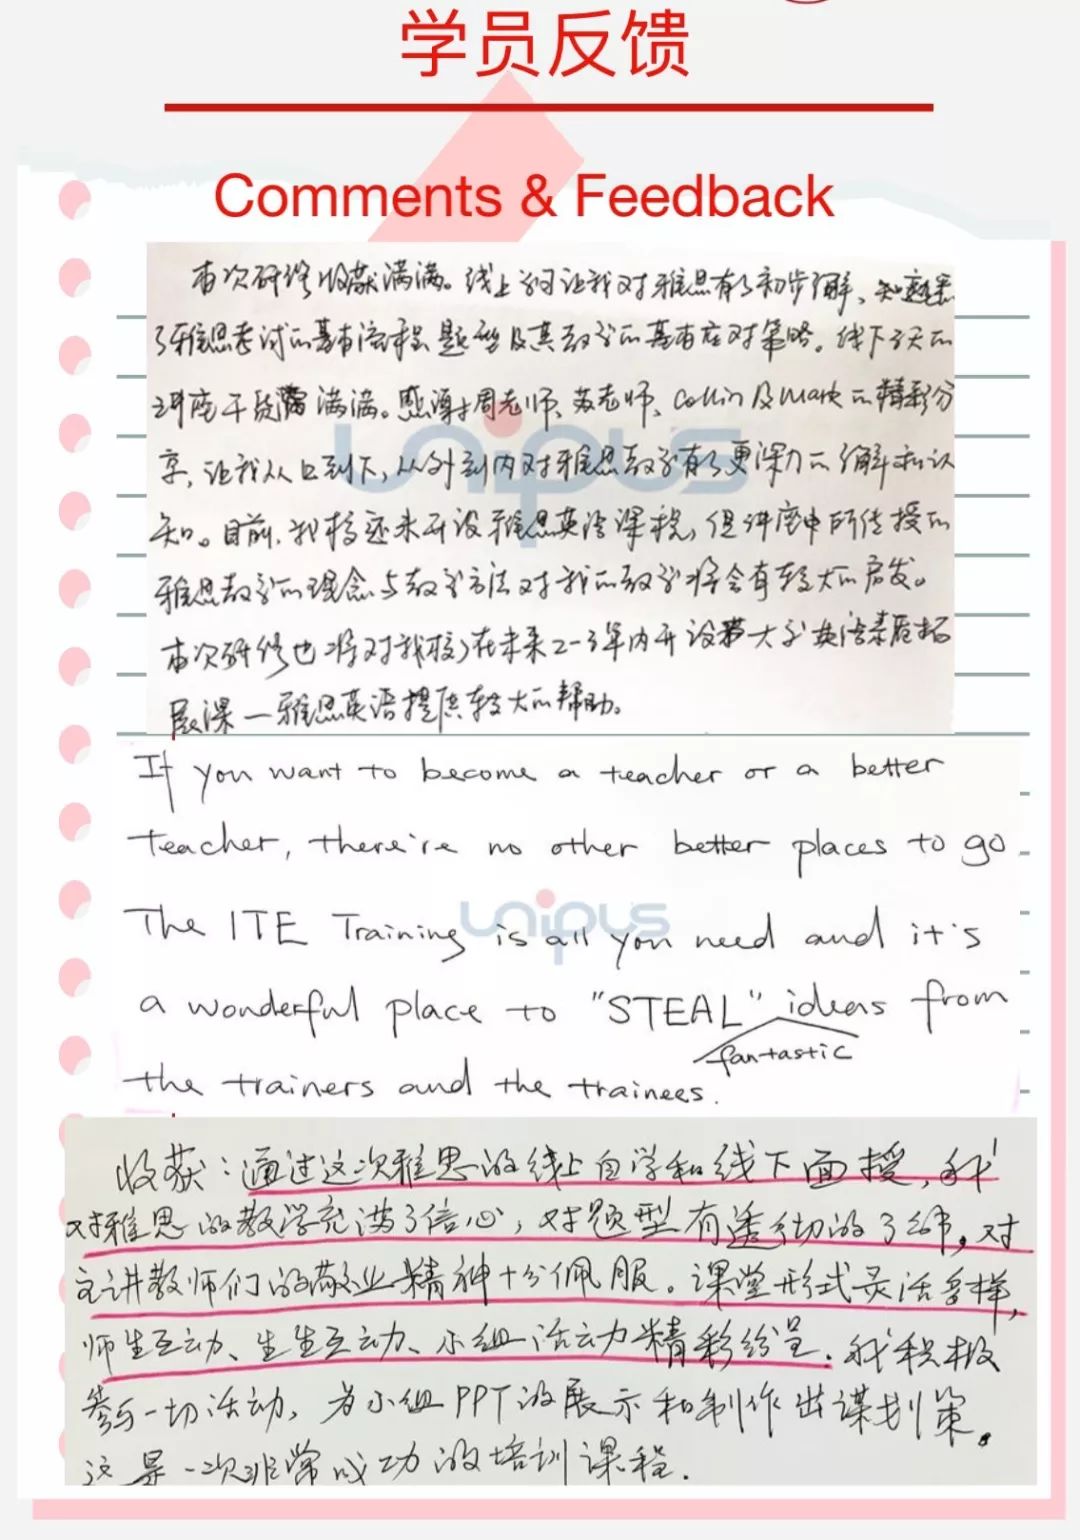 学员反馈
Comments & Feedback
本次研修收获满满。线上学习让我对雅思有了初步了解、知悉
了雅思考试的基本流程、题型及其教学的基本应对策略。线下3天的
讲座干货满满。感谢周老师、苏老师、Collin及Mark的精彩分
享,让我从上到下,从外到内对雅思教学有了更深入的了解和认
知。目前,我校还未开设雅思英语课程,但讲座中所传授的
雅思教学的理念与教学方法对我的教学将会有较大的启发。
本次研修也将对我校在未来2-3年内开设大学英语基后拓
展课—雅思英语提供较大的帮助。
unipus
If you want to become a teacher or a better
teacher, there're no other better places to go
The ITE Training is all you need and it's
a wonderful place to "STEAL" ideas from
fantastic
the trainers and the trainees.
unipus
收获:通过这次雅思的线上自学和线下面授,我
对雅思的教学充满了信心,对题型有透彻的了解。对
主讲教师们的敬业精神十分佩服。课堂形式灵活多样,
师生互动、生生互动、小组活动精彩纷呈.我积极
参与一切活动,为小组PPT的展示和制作出谋划策。
这是一次非常成功的培训课程.